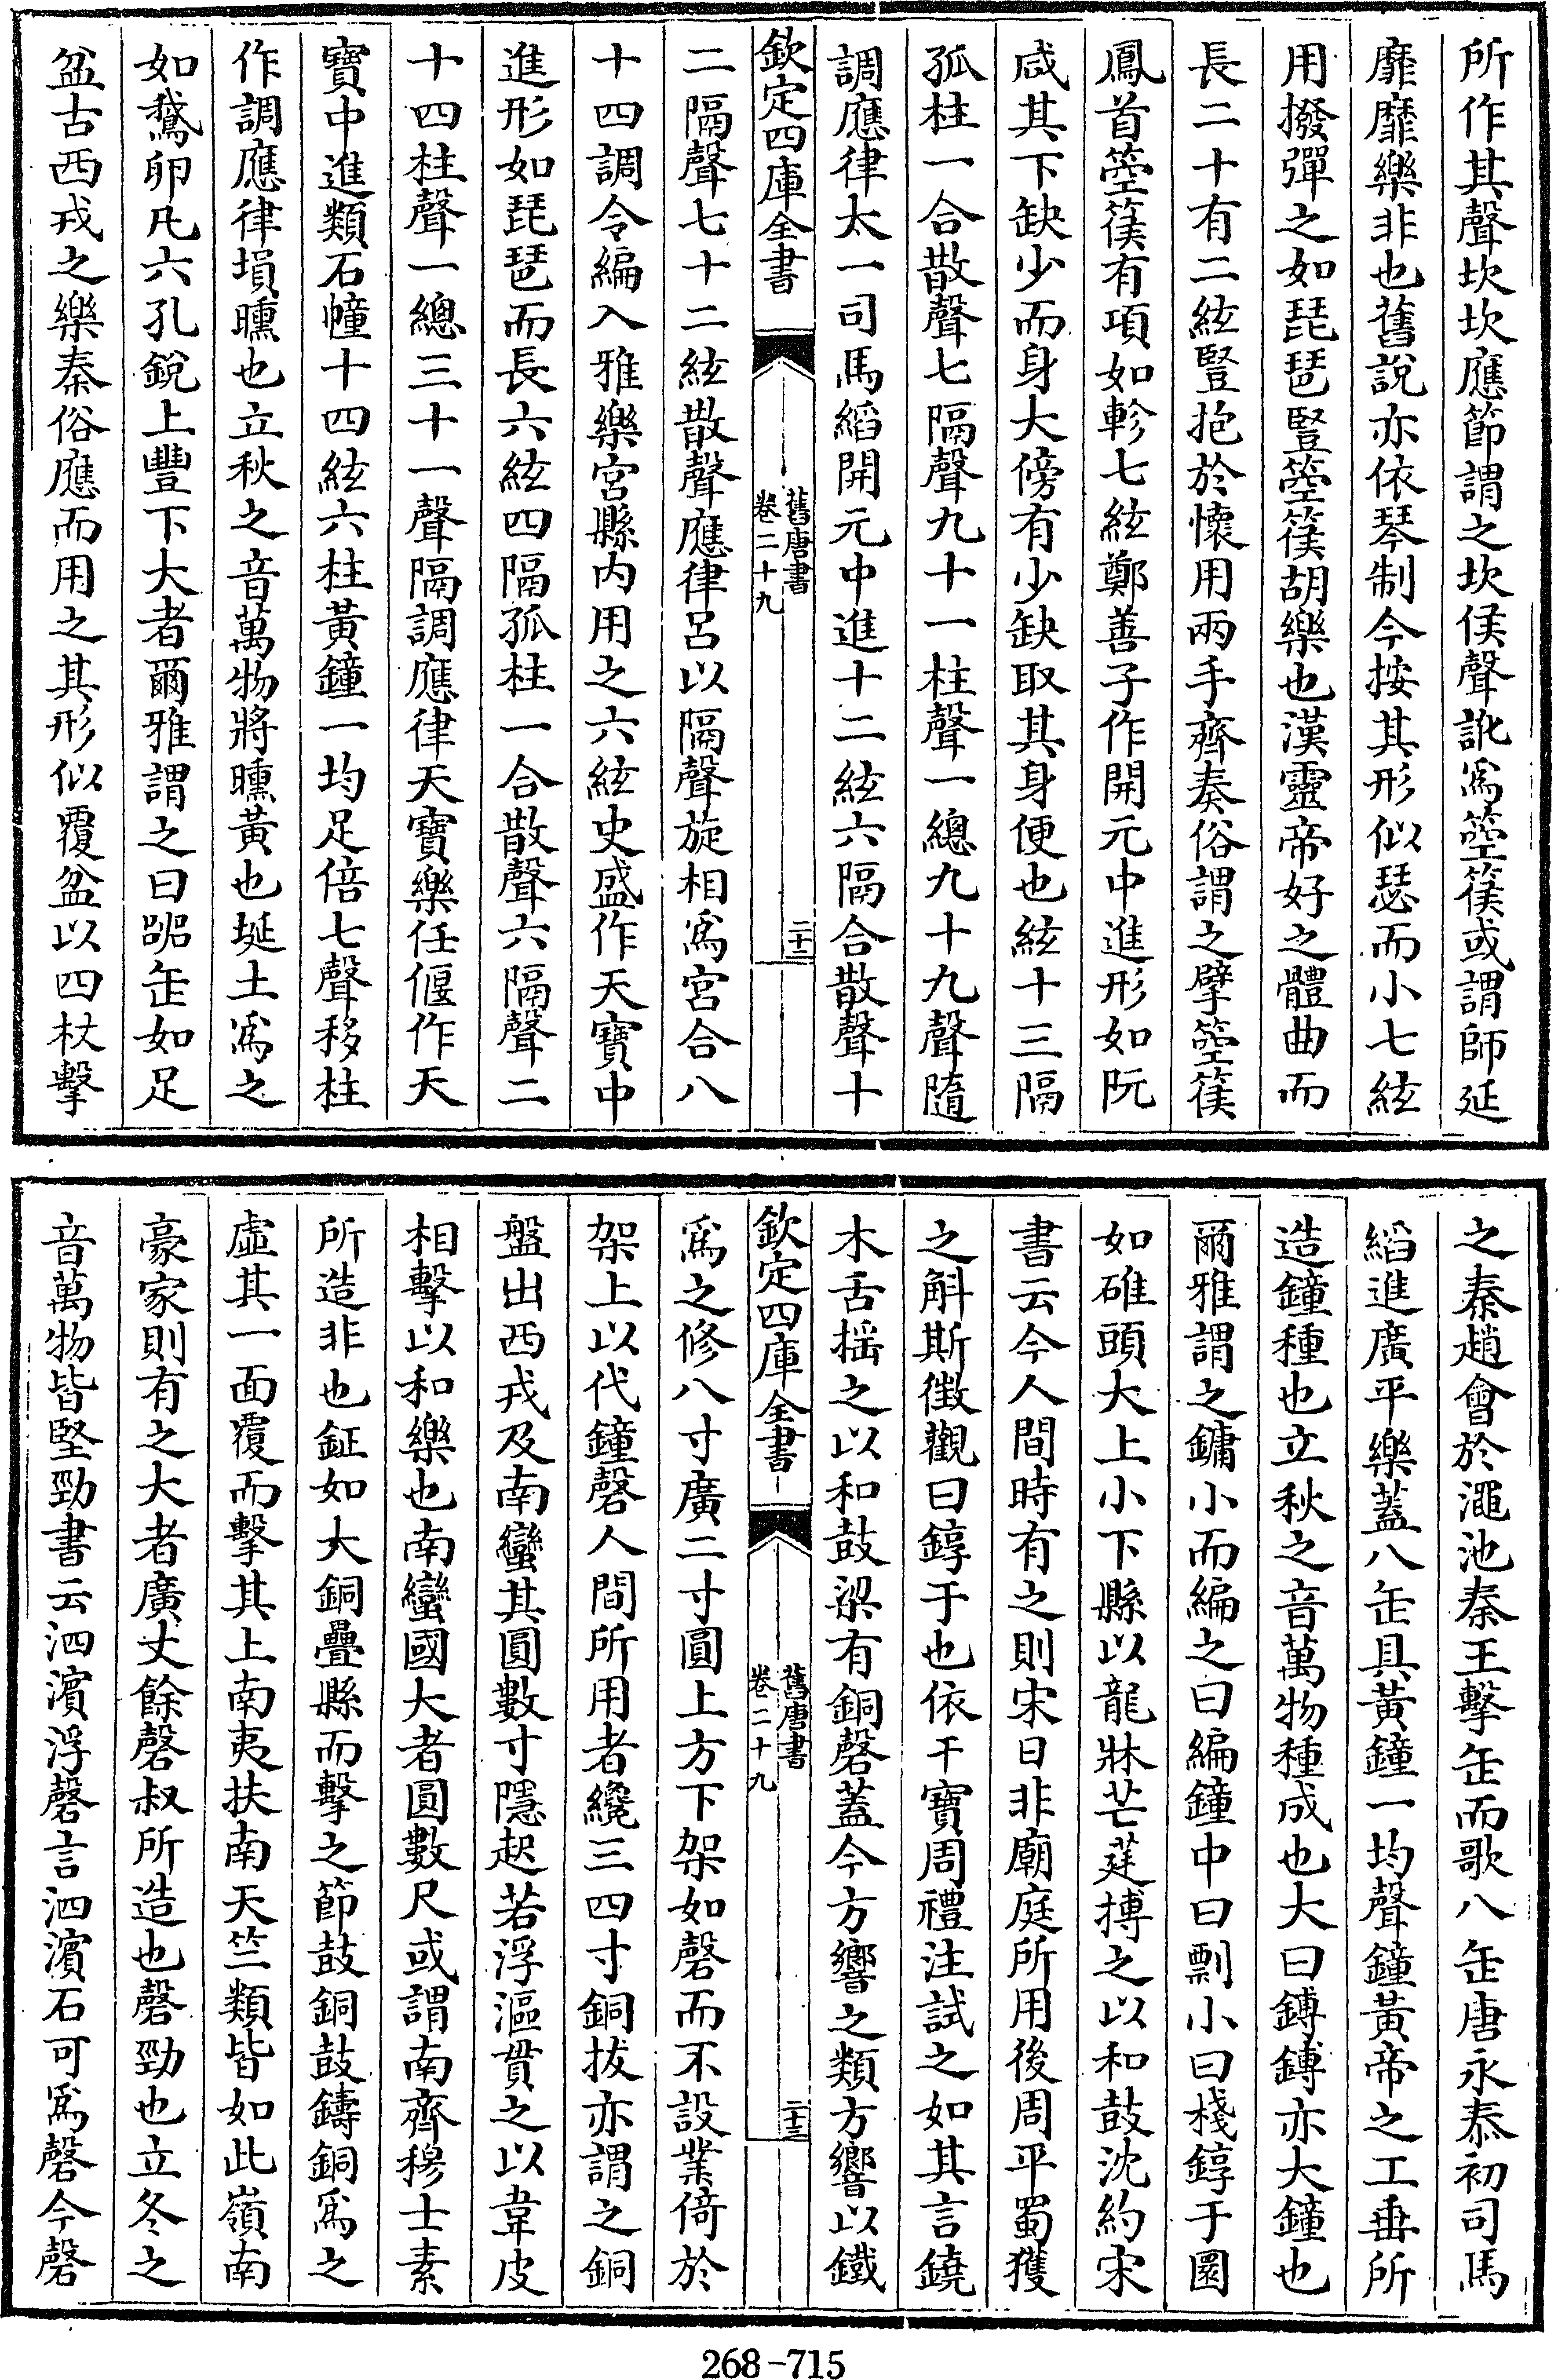 所作其聲坎坎應節謂之坎侯聲訛為箜篌或謂師延
靡靡樂非也舊說亦依琴制今按其形似瑟而小七絃
用撥彈之如琵琶豎箜篌胡樂也漢靈帝好之體曲而
長二十有二絃豎抱於懷用兩手齊奏俗謂之擘箜篌
鳳首箜篌有項如軫七絃鄭善子作開元中進形如阮
咸其下缺少而身大傍有少缺取其身便也絃十三隔
孤柱一合散聲七隔聲九十一柱聲一總九十九聲隨
調應律太一司馬縚開元中進十二絃六隔合散聲十
欽定四庫全書
舊唐書
卷二十九
二十二
二隔聲七十二絃散聲應律呂以隔聲旋相為宮合八
十四調令編入雅樂宮縣內用之六絃史盛作天寶中
進形如琵琶而長六絃四隔孤柱一合散聲六隔聲二
十四柱聲一總三十一聲隔調應律天寶樂任偃作天
寶中進類石幢十四絃六柱黃鐘一均足倍七聲移柱
作調應律塤曛也立秋之音萬物將曛黃也埏土為之
如鵝卵凡六孔銳上豐下大者爾雅謂之曰㗌缶如足
盆古西戎之樂秦俗應而用之其形似覆盆以四杖擊
之秦趙會於澠池秦王擊缶而歌八缶唐永泰初司馬
縚進廣平樂蓋八缶具黃鐘一均聲鐘黃帝之工垂所
造鐘種也立秋之音萬物種成也大曰鎛鎛亦大鐘也
爾雅謂之鏞小而編之曰編鐘中曰剽小曰棧錞于圜
如碓頭大上小下縣以龍牀芒莛搏之以和鼓沈約宋
書云今人間時有之則宋日非廟庭所用後周平蜀獲
之斛斯徵觀曰錞于也依干寶周禮注試之如其言鐃
木舌搖之以和鼓梁有銅磬蓋今方響之類方響以鐵
欽定四庫全書
舊唐書
卷二十九
二十三
為之修八寸廣二寸圓上方下架如磬而不設業倚於
架上以代鐘磬人間所用者纔三四寸銅拔亦謂之銅
盤出西戎及南蠻其圓數寸隱起若浮漚貫之以韋皮
相擊以和樂也南蠻國大者圓數尺或謂南齊穆士素
所造非也鉦如大銅疊縣而擊之節鼓銅鼓鑄銅為之
虛其一面覆而擊其上南夷扶南天竺類皆如此嶺南
豪家則有之大者廣丈餘磬叔所造也磬勁也立冬之
音萬物皆堅勁書云泗濱浮磬言泗濱石可為磬今磬
268-715